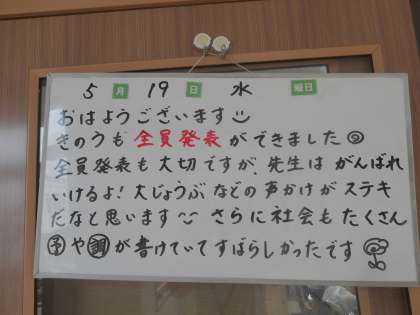 5月19日 水曜日
おはようございます
きのうも全員発表ができました
全員発表も大切ですが、先生は がんばれ
いけるよ!大じょうぶなどの声かけがステキ
だなと思います さらに社会もたくさん
予や調が書けていてすばらしかったです